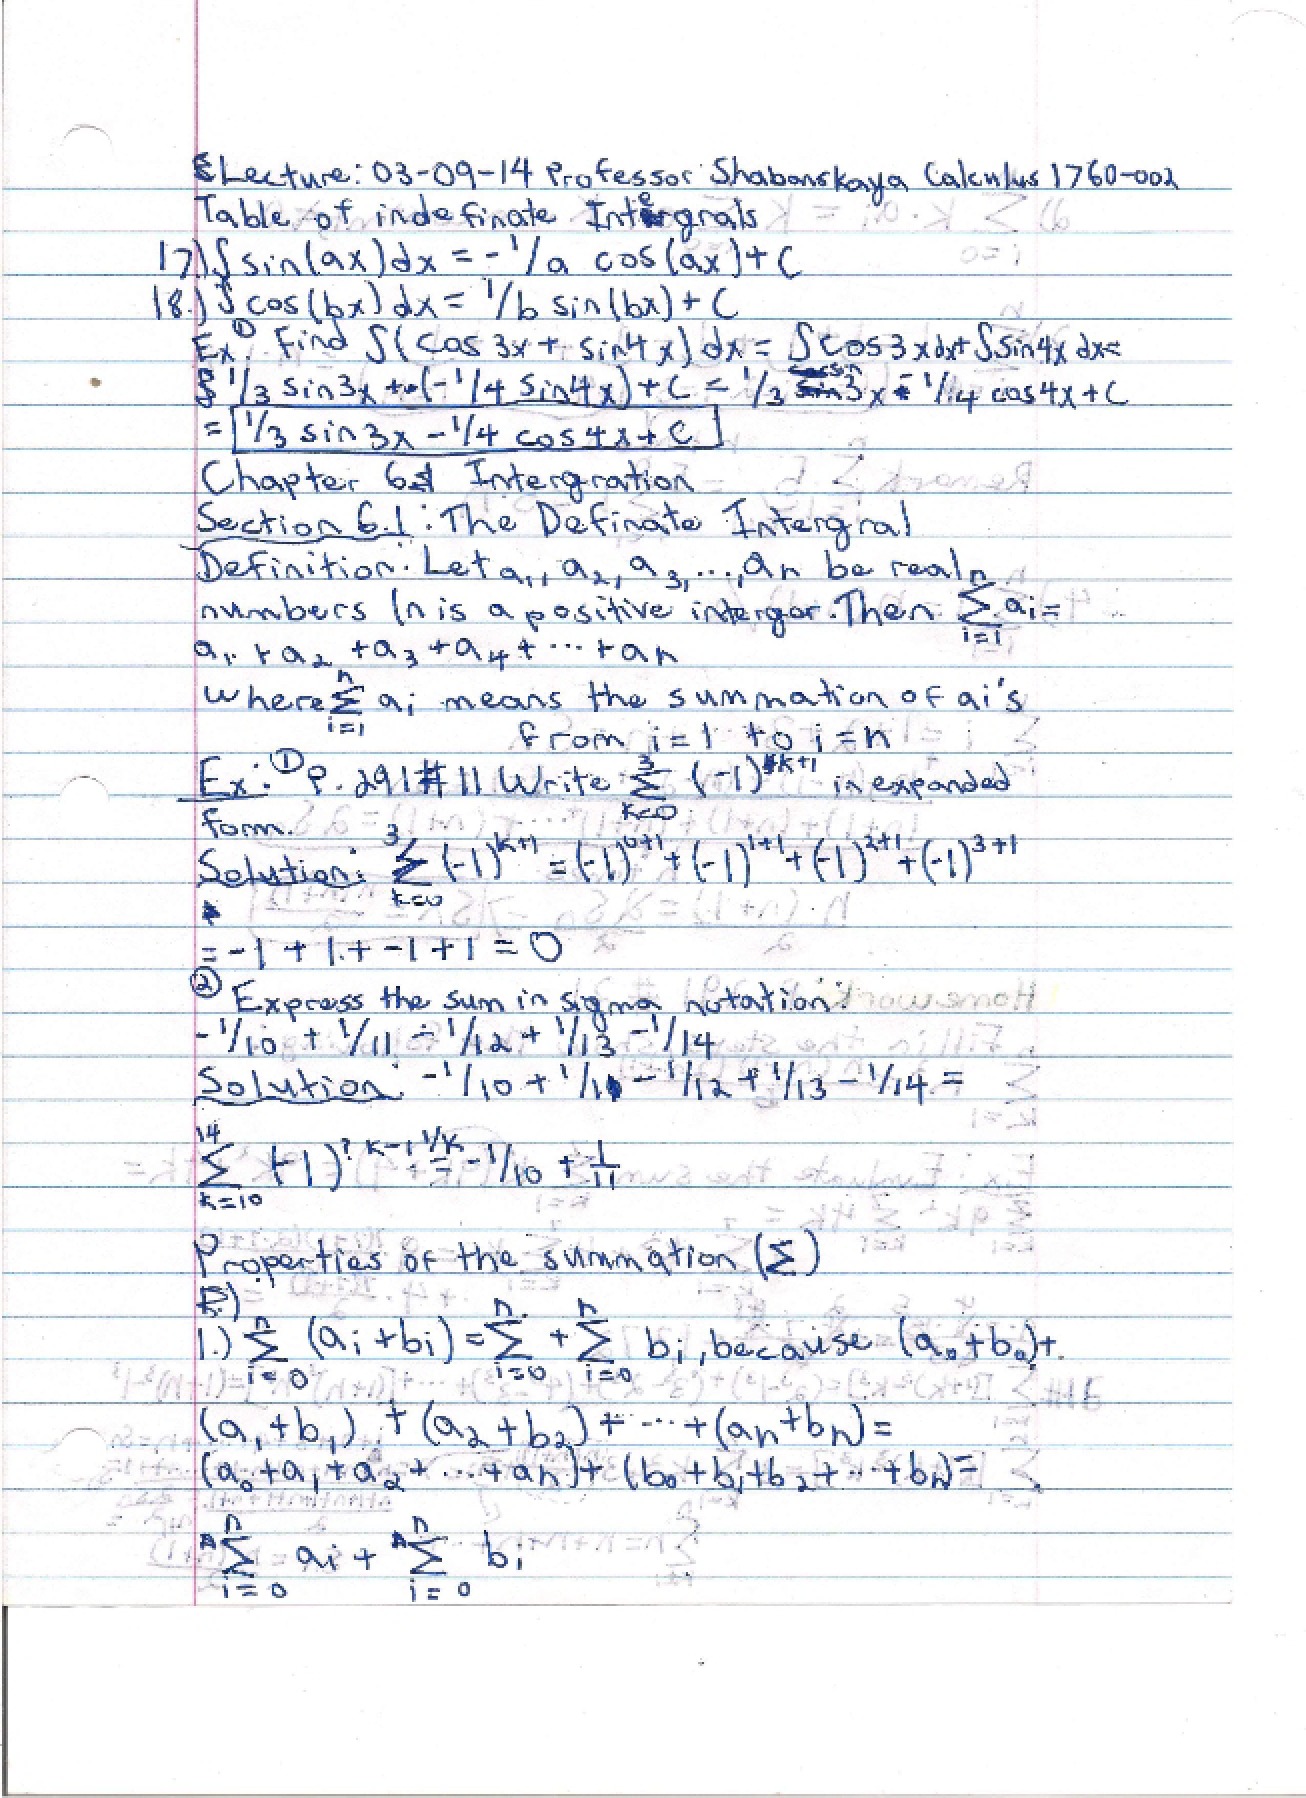 Lecture: 03-09-14 Professor Shabanskaya Calculus 1760-002
Table of indefinate Intergrals
17.) ∫ sin(ax)dx = -1/a cos(ax)+C
18.) ∫ cos(bx)dx = 1/b sin(bx)+C
Ex ① Find ∫(cos 3x + sin4x)dx = ∫cos3xdx+∫sin4xdx=
1/3 sin3x + (-1/4 sin4x)+C = 1/3 sin3x - 1/4 cos4x+C
= 1/3 sin3x - 1/4 cos4x+C
Chapter 6 Intergration
Section 6.1: The Definate Intergral
Definition: Let a₁, a₂, a₃, ..., an be real
numbers (n is a positive intergor. Then n∑i=1 ai =
a₁ + a₂ + a₃ + a₄ + ... + an
where n∑i=1 ai means the summation of ai's
from i=1 to i=n
Ex: ① P. 291 #11 Write 3∑k=0 (-1)^k+1 in expanded
form.
Solution: 3∑k=0 (-1)^k+1 = (-1)^0+1 + (-1)^1+1 + (-1)^2+1 + (-1)^3+1
= -1 + 1 + -1 + 1 = 0
② Express the sum in sigma notation:
-1/10 + 1/11 - 1/12 + 1/13 - 1/14
Solution: -1/10 + 1/11 - 1/12 + 1/13 - 1/14 =
14∑k=10 (-1)^? k-1 1/k = -1/10 + 1/11
Properties of the summation (∑)
1.) n∑i=0 (ai + bi) = n∑i=0 + n∑i=0 bi, because (a₀+b₀)+
(a₁+b₁) + (a₂+b₂) + ... + (an+bn) =
(a₀+a₁+a₂+...+an)+(b₀+b₁+b₂+...+bn) =
n∑i=0 ai + n∑i=0 bi